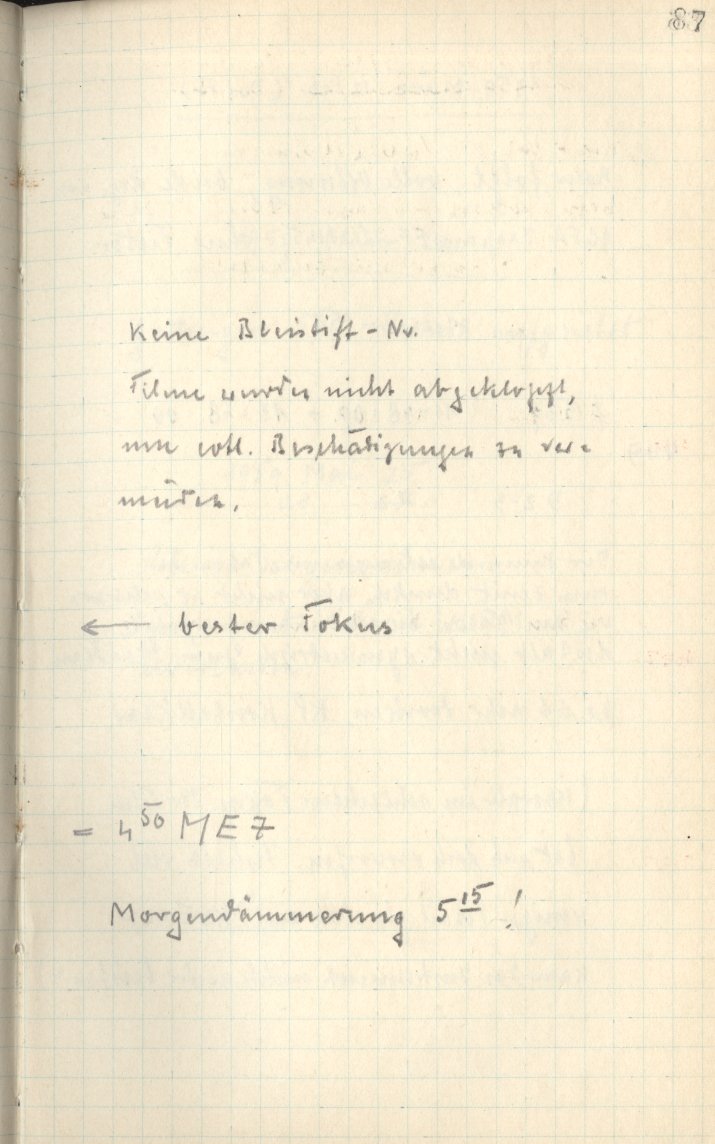 87
Keine Bleistift-Nr.
Filme wurden nicht abgeklopft,
um evtl. Beschädigungen zu ver-
meiden.
← bester Fokus
= 4⁵⁰ MEZ
Morgendämmerung 5¹⁵ !